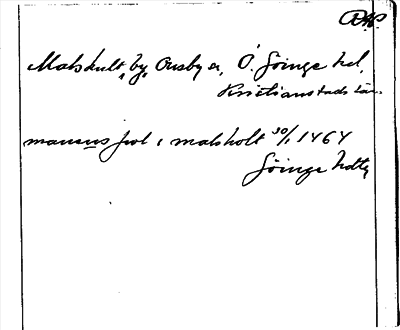 DAP.
Matskult, by, Ousby sn, Ö. Göinge hd,
Kristianstads län.
mansus wol i matsholt 30/1 1464
Göinge hdtg